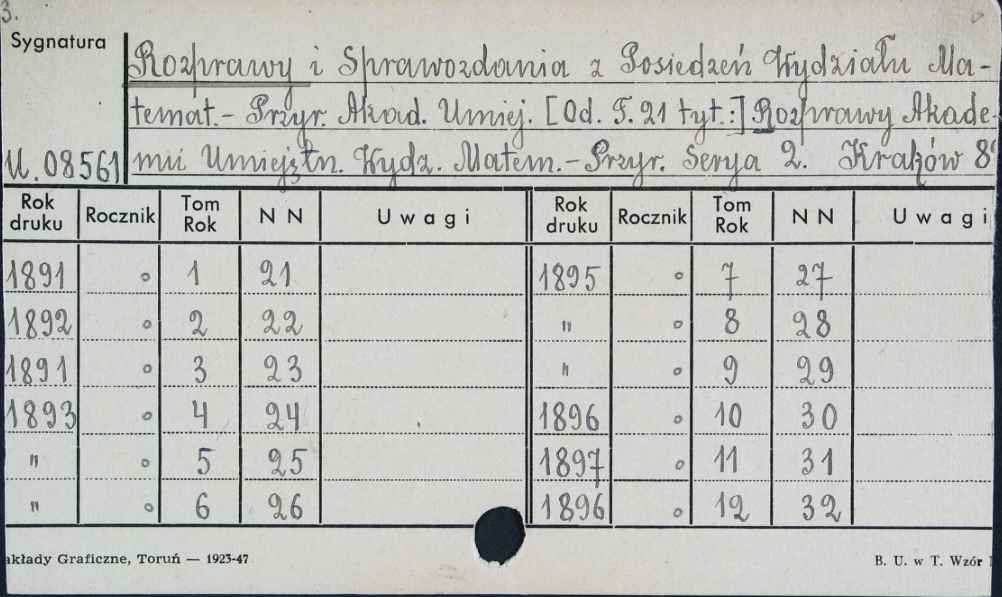 3.
Sygnatura
Rozprawy i Sprawozdania z Posiedzeń Wydziału Ma-
temat.- Przyr. Akad. Umiej. [Od. T. 21 tyt.:] Rozprawy Akade-
U. 08561 mii Umiejętn. Wydz. Matem.- Przyr. Serya 2. Kraków 8º
Rok druku Rocznik Tom Rok N N Uwagi Rok druku Rocznik Tom Rok N N Uwagi
1891 o 1 21 1895 o 7 27
1892 o 2 22 " o 8 28
1891 o 3 23 " o 9 29
1893 o 4 24 1896 o 10 30
" o 5 25 1897 o 11 31
" o 6 26 1896 o 12 32
akłady Graficzne, Toruń — 1923-47 B. U. w T. Wzór